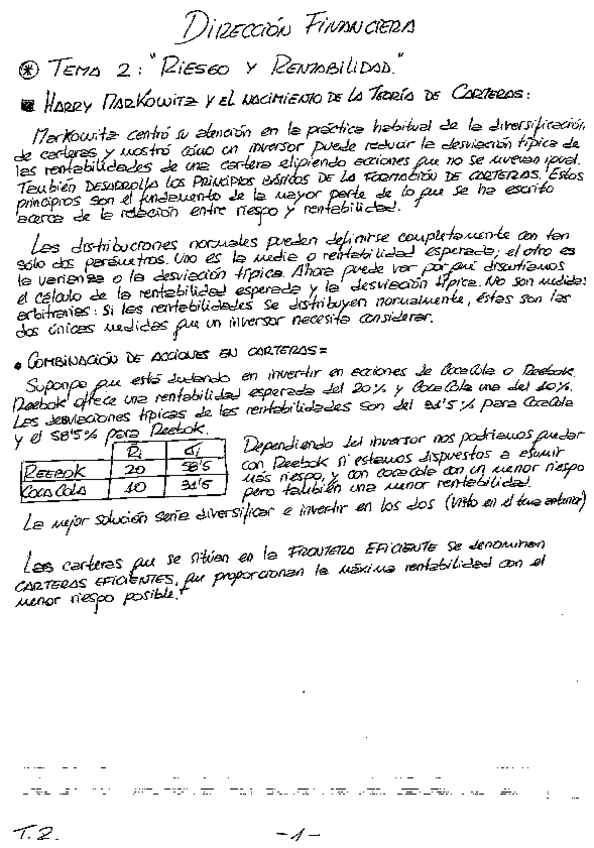 DIRECCIÓN FINANCIERA
TEMA 2: "RIESGO Y RENTABILIDAD."
HARRY MARKOWITZ Y EL NACIMIENTO DE LA TEORÍA DE CARTERAS:
Markowitz centró su atención en la práctica habitual de la diversificación
de carteras y mostró cómo un inversor puede reducir la desviación típica de
las rentabilidades de una cartera eligiendo acciones que no se muevan igual.
También DESARROLLO LOS PRINCIPIOS BÁSICOS DE LA FORMACIÓN DE CARTERAS. Estos
principios son el fundamento de la mayor parte de lo que se ha escrito
acerca de la relación entre riesgo y rentabilidad.
Las distribuciones normales pueden definirse completamente con tan
sólo dos parámetros. Uno es la media o rentabilidad esperada; el otro es
la varianza o la desviación típica. Ahora puede ver por qué discutíamos
el cálculo de la rentabilidad esperada y la desviación típica. No son medidas
arbitrarias: Si las rentabilidades se distribuyen normalmente, éstas son las
dos únicas medidas que un inversor necesita considerar.
• COMBINACIÓN DE ACCIONES EN CARTERAS=
Suponga que está dudando en invertir en acciones de CocaCola o Reebok.
Reebok ofrece una rentabilidad esperada del 20% y CocaCola una del 10%.
Las desviaciones típicas de las rentabilidades son del 31'5% para CocaCola
y el 58'5% para Reebok.
R̄i σi
REEBOK 20 58'5
COCACOLA 10 31'5
Dependiendo del inversor nos podríamos quedar
con Reebok si estamos dispuestos a asumir
más riesgo, y con cocacola con un menor riesgo
pero también una menor rentabilidad.
La mejor solución sería diversificar e invertir en los dos (visto en el tema anterior)
Las carteras que se sitúan en la FRONTERA EFICIENTE se denominan
CARTERAS EFICIENTES, que proporcionan la máxima rentabilidad con el
menor riesgo posible.
T.2. -1-